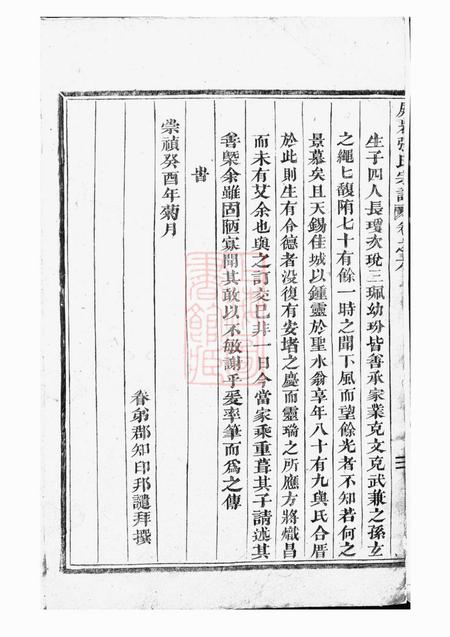 張氏宗譜 卷之六
生子四人長瓊次玧三珮幼玢皆善承家業克文克武兼之孫玄
之繩七馥隋七十有餘一時之聞下風而望餘光者不知若何之
景慕矣且天錫佳城以鍾靈於聖水翁享年八十有九與氏合厝
於此則生有令德者没復有安堵之慶而靈瑞之所應方將熾昌
而未有艾余也與之訂交已非一日今當家乘重葺其子請述其
善槩余雖固陋寡聞其敢以不敏謝乎爰率筆而為之傳
旹
崇禎癸酉年菊月
眷弟郡知印邦譴拜撰